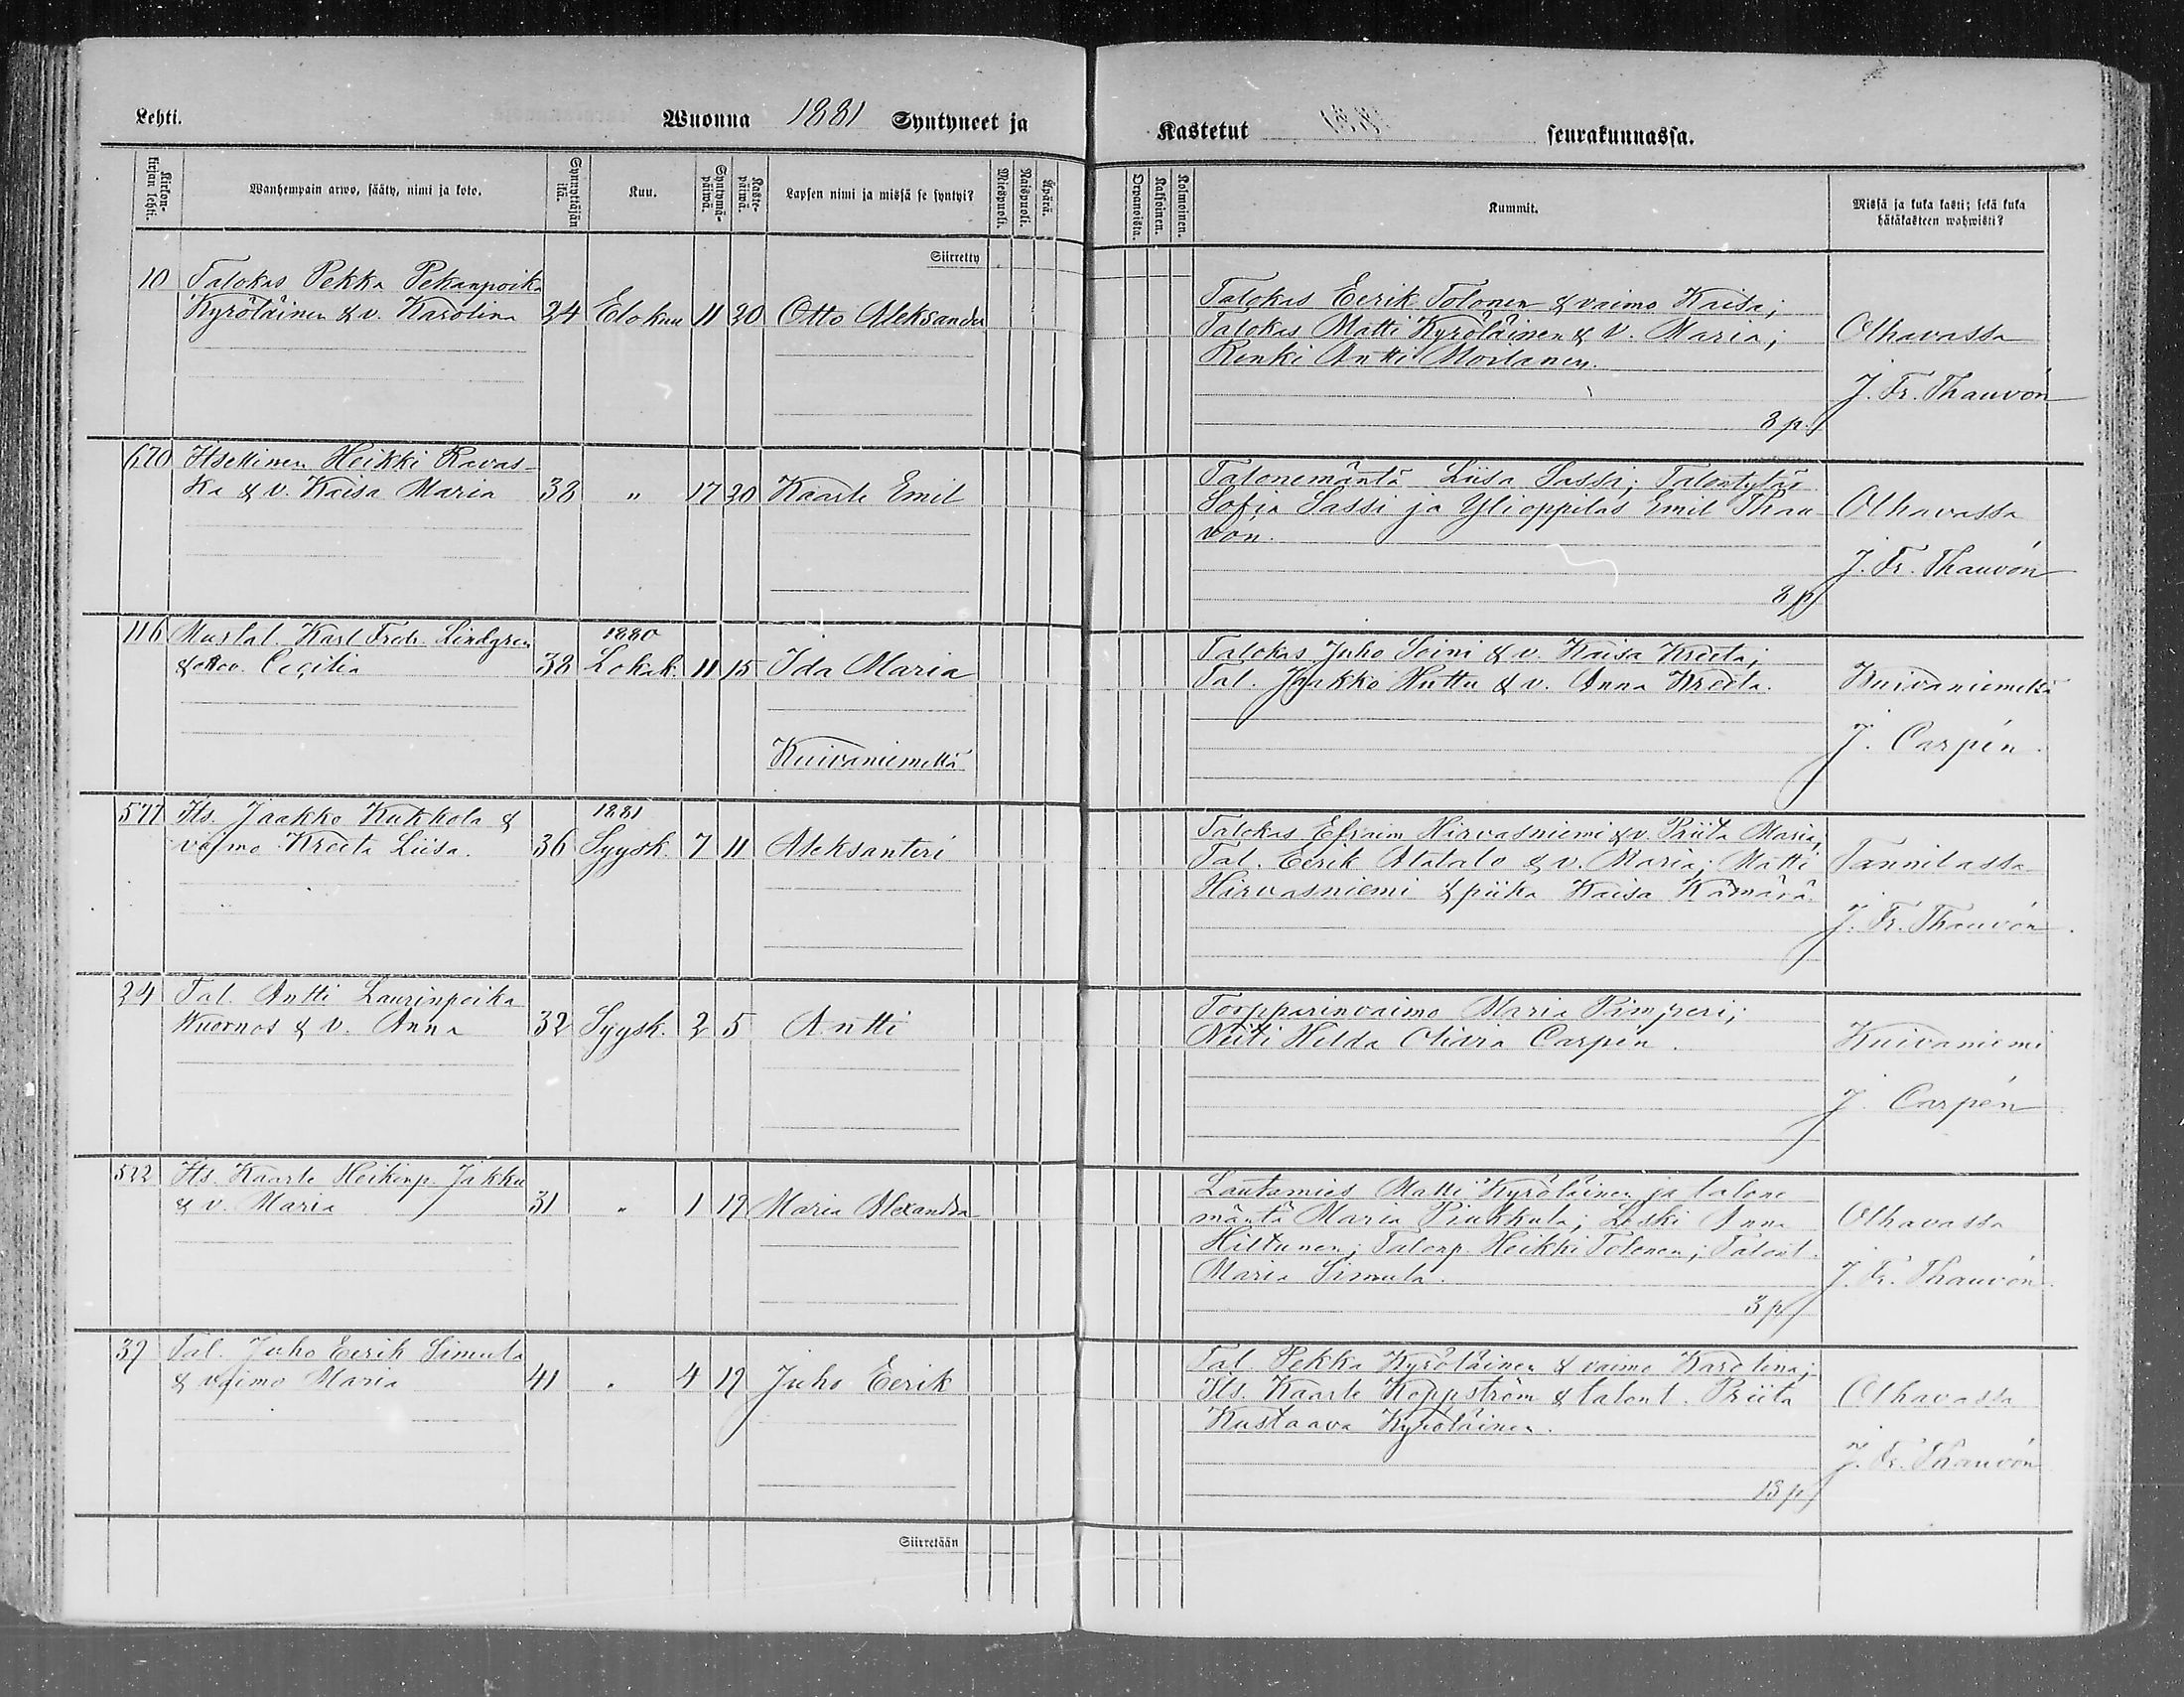 Lehti.
Wuonna 1881 Syntyneet ja
Kastetut seurakunnassa.
Kirkonkirjan lehti.
Wanhempain arwo, sääty, nimi ja koto.
Synnyttäjän ikä.
Kuu.
Syntymäpäiwä.
Kastepäiwä.
Lapsen nimi ja missä se syntyi?
Miespuoli.
Naispuoli.
Äpärä.
Orpanoista.
Kaksoinen.
Kolmoinen.
Kummit.
Missä ja kuka kasti; sekä kuka
hätäkasteen wahwisti?
Siirretty
10 Talokas Pekka Pekanpoika
Kyröläinen & v. Karolina 24 Elokuu 11 20 Otto Aleksander
Talokas Eerik Tolonen & vaimo Kaisa;
Talokas Matti Kyröläinen & v. Maria;
Renki Antti
3 p.
Olhavassa
J. Fr. Thauvón
670 Itsellinen Heikki Ravas-
ka & v. Kaisa Maria 38 " 17 20 Kaarle Emil
Talonemäntä Liisa Sassi; Talontytär
Sofia Sassi ja Ylioppilas Emil Thau
vón.
3 p
Olhavassa
J. Fr. Thauvón
116 Muslal. Karl Fredr. Lindgren
Cecilia 38 1880 Lokak. 11 15 Ida Maria
Kuivaniemellä
Talokas Juho Soini & v. Kaisa Kreeta;
Tal. Jaakko Huttu & v. Anna Kreeta.
Kuivaniemellä
J. Carpén
577 Its. Jaakko Kukkola &
vaimo Kreeta Liisa. 36 1881 Syysk. 7 11 Aleksanteri
Talokas Efraim Hirvasniemi & v. Priita Maria,
Tal. Eerik Alatalo & v. Maria; Matti
Hirvasniemi & piika Kaisa Kämärä.
Tannilassa
J. Fr. Thauvón
24 Tal. Antti Laurinpoika
Kuornos & v. Anna 32 Syysk. 2 5 Antti
Torpparinvaimo Maria Pimperi;
Neiti Hilda Carpén.
Kuivaniemi
J. Carpén
522 Its. Kaarle Heikinp. Jakku
& v. Maria 31 " 1 19 Maria Alexandra
Lautamies Matti Kyröläinen ja talone
mäntä Maria Piukkula; Leski Anna
Hiltunen; Talonp. Heikki Tolonen; Talont.
Maria Simula.
3 p
Olhavassa
J. Fr. Thauvón
39 Tal. Juho Eerik Simula
& vaimo Maria 41 " 4 19 Juho Eerik
Tal. Pekka Kyröläinen & vaimo Karolina;
Its. Kaarle Koppström & talont. Priita
Kustaava Kyröläinen.
13 p
Olhavassa
J. Fr. Thauvón
Siirretään